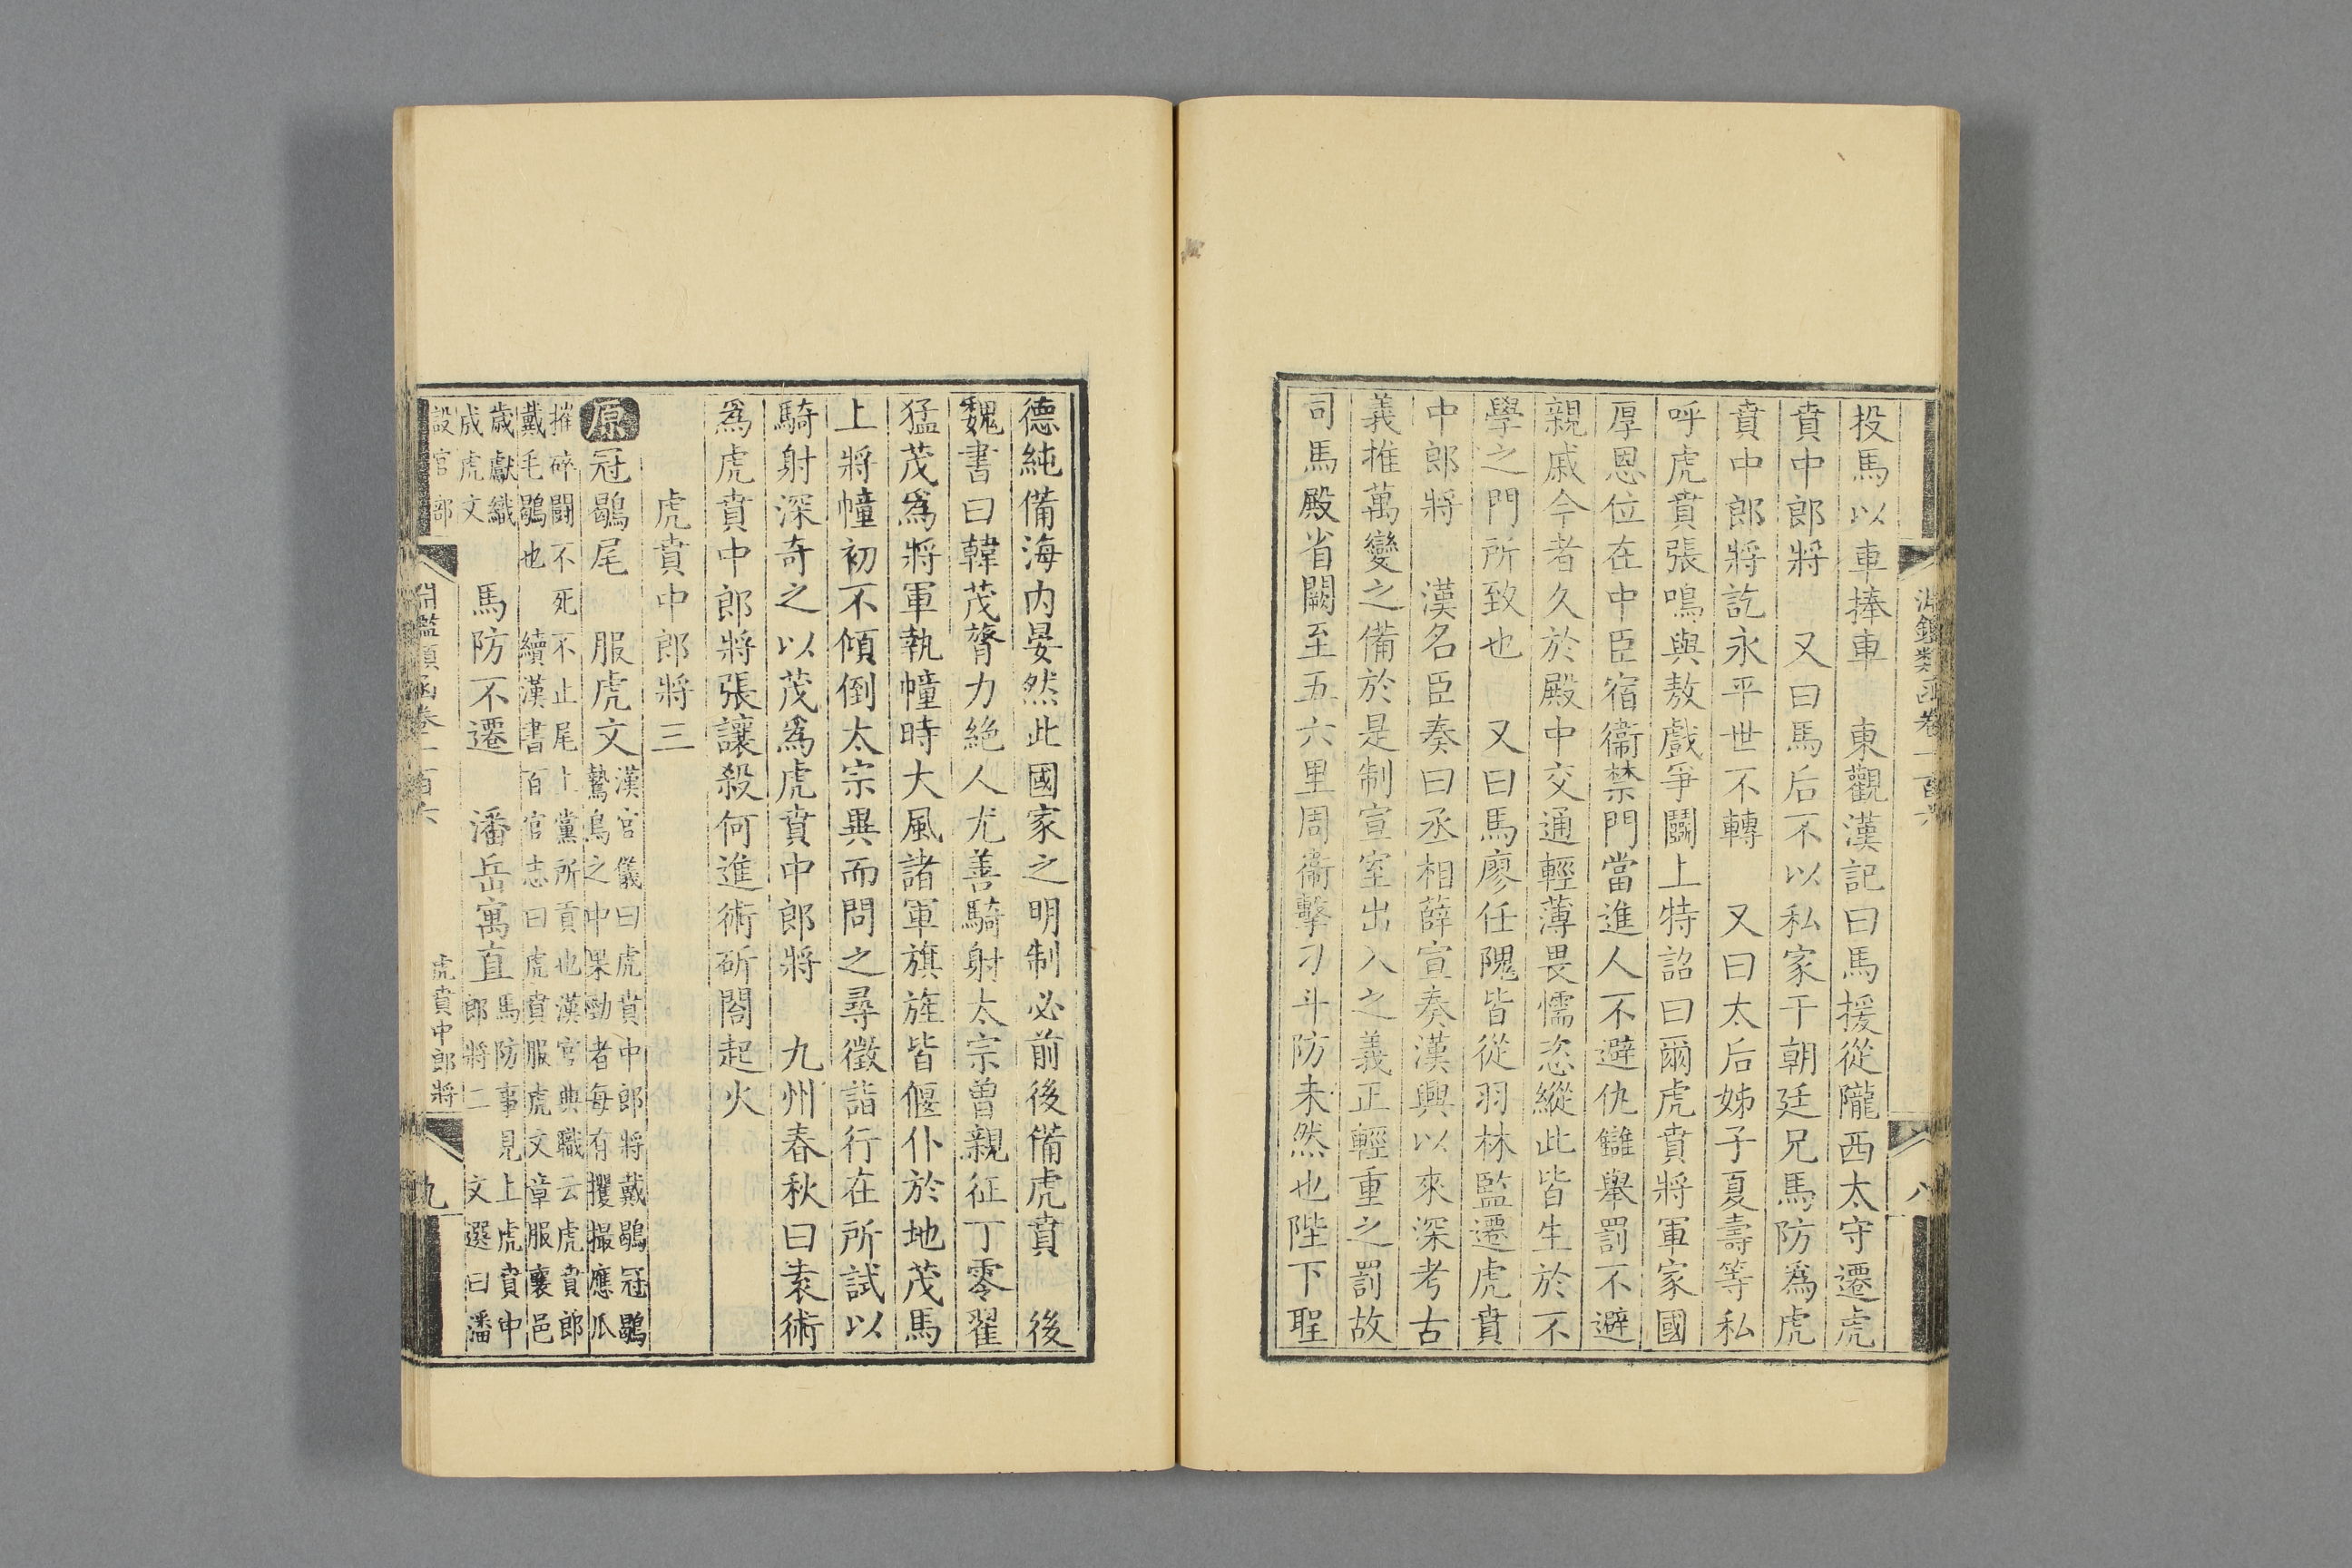 淵鑑類函卷一百六
八
投馬以車捧車　東觀漢記曰馬援從隴西太守遷虎
賁中郎將　又曰馬后不以私家干朝廷兄馬防爲虎
賁中郎將訖永平世不轉　又曰太后姊子夏壽等私
呼虎賁張鳴與敖戲爭鬬上特詔曰爾虎賁將軍家國
厚恩位在中臣宿衞禁門當進人不避仇讎舉罰不避
親戚今者久於殿中交通輕薄畏懦恣縱此皆生於不
學之門所致也　又曰馬廖任隗皆從羽林監遷虎賁
中郎將　漢名臣奏曰丞相薛宣奏漢興以來深考古
義推萬變之備於是制宣室出入之義正輕重之罰故
司馬殿省闕至五六里周衞擊刁斗防未然也陛下聖
德純備海内晏然此國家之明制必前後備虎賁　後
魏書曰韓茂膂力絶人尤善騎射太宗曾親征丁零翟
猛茂爲將軍執幢時大風諸軍旗旌皆偃仆於地茂馬
上將幢初不傾倒太宗異而問之尋徵詣行在所試以
騎射深奇之以茂爲虎賁中郎將　九州春秋曰袁術
爲虎賁中郎將張讓殺何進術斫閤起火
虎賁中郎將三
原冠鶡尾　服虎文
漢官儀曰虎賁中郎將戴鶡冠鶡
鷙鳥之中果勁者每有攫撮應瓜
摧碎鬬不死不止尾上黨所貢也漢官典職云虎賁郎
戴毛鶡也　續漢書百官志曰虎賁服虎文章服襄邑
歲獻織
成虎文
馬防不遷　潘岳寓直
馬防事見上虎賁中
郎將二　文選曰潘
設官部
淵鑑類函卷一百六
虎賁中郎將
九